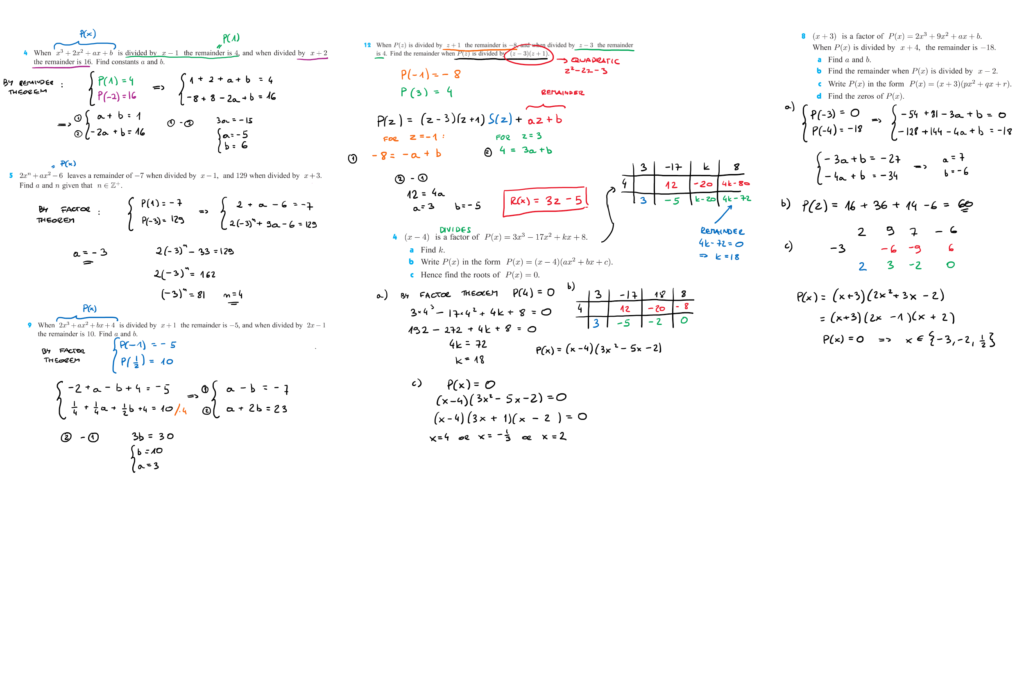 P(x)
P(1)
4 When x³ + 2x² + ax + b is divided by x − 1 the remainder is 4, and when divided by x + 2
the remainder is 16. Find constants a and b.
BY REMAINDER THEOREM :
P(1) = 4
P(-2) = 16
=>
1 + 2 + a + b = 4
-8 + 8 - 2a + b = 16
=>
① a + b = 1
② -2a + b = 16
① - ②
3a = -15
a = -5
b = 6
P(x)
5 2xⁿ + ax² − 6 leaves a remainder of −7 when divided by x − 1, and 129 when divided by x + 3.
Find a and n given that n ∈ ℤ⁺.
BY FACTOR THEOREM :
P(1) = -7
P(-3) = 129
=>
2 + a - 6 = -7
2(-3)ⁿ + 9a - 6 = 129
a = -3
2(-3)ⁿ - 33 = 129
2(-3)ⁿ = 162
(-3)ⁿ = 81 n = 4
P(x)
9 When 2x³ + ax² + bx + 4 is divided by x + 1 the remainder is −5, and when divided by 2x − 1
the remainder is 10. Find a and b.
BY FACTOR THEOREM
P(-1) = -5
P(½) = 10
-2 + a - b + 4 = -5
¼ + ¼a + ½b + 4 = 10 /·4
=>
① a - b = -7
② a + 2b = 23
② - ①
3b = 30
b = 10
a = 3
12 When P(z) is divided by z + 1 the remainder is −8, and when divided by z − 3 the remainder
is 4. Find the remainder when P(z) is divided by (z − 3)(z + 1).
→ QUADRATIC
z² - 2z - 3
P(-1) = -8
P(3) = 4
REMAINDER
P(z) = (z-3)(z+1) S(z) + az + b
FOR z = -1 :
FOR z = 3
① -8 = -a + b
② 4 = 3a + b
② - ①
12 = 4a
a = 3 b = -5
R(x) = 3z - 5
DIVIDES
4 (x − 4) is a factor of P(x) = 3x³ − 17x² + kx + 8.
a Find k.
b Write P(x) in the form P(x) = (x − 4)(ax² + bx + c).
c Hence find the roots of P(x) = 0.
3 -17 k 8
4 12 -20 4k-80
3 -5 k-20 4k-72
REMAINDER
4k - 72 = 0
=> k = 18
a) BY FACTOR THEOREM P(4) = 0
3·4³ - 17·4² + 4k + 8 = 0
192 - 272 + 4k + 8 = 0
4k = 72
k = 18
b)
3 -17 18 8
4 12 -20 -8
3 -5 -2 0
P(x) = (x-4)(3x² - 5x - 2)
c) P(x) = 0
(x-4)(3x² - 5x - 2) = 0
(x-4)(3x + 1)(x - 2) = 0
x = 4 or x = -⅓ or x = 2
8 (x + 3) is a factor of P(x) = 2x³ + 9x² + ax + b.
When P(x) is divided by x + 4, the remainder is −18.
a Find a and b.
b Find the remainder when P(x) is divided by x − 2.
c Write P(x) in the form P(x) = (x + 3)(px² + qx + r).
d Find the zeros of P(x).
a)
P(-3) = 0
P(-4) = -18
=>
-54 + 81 - 3a + b = 0
-128 + 144 - 4a + b = -18
-3a + b = -27
-4a + b = -34
=>
a = 7
b = -6
b) P(2) = 16 + 36 + 14 - 6 = 60
c)
2 9 7 -6
-3 -6 -9 6
2 3 -2 0
P(x) = (x+3)(2x² + 3x - 2)
= (x+3)(2x - 1)(x + 2)
P(x) = 0 => x ∈ {-3, -2, ½}